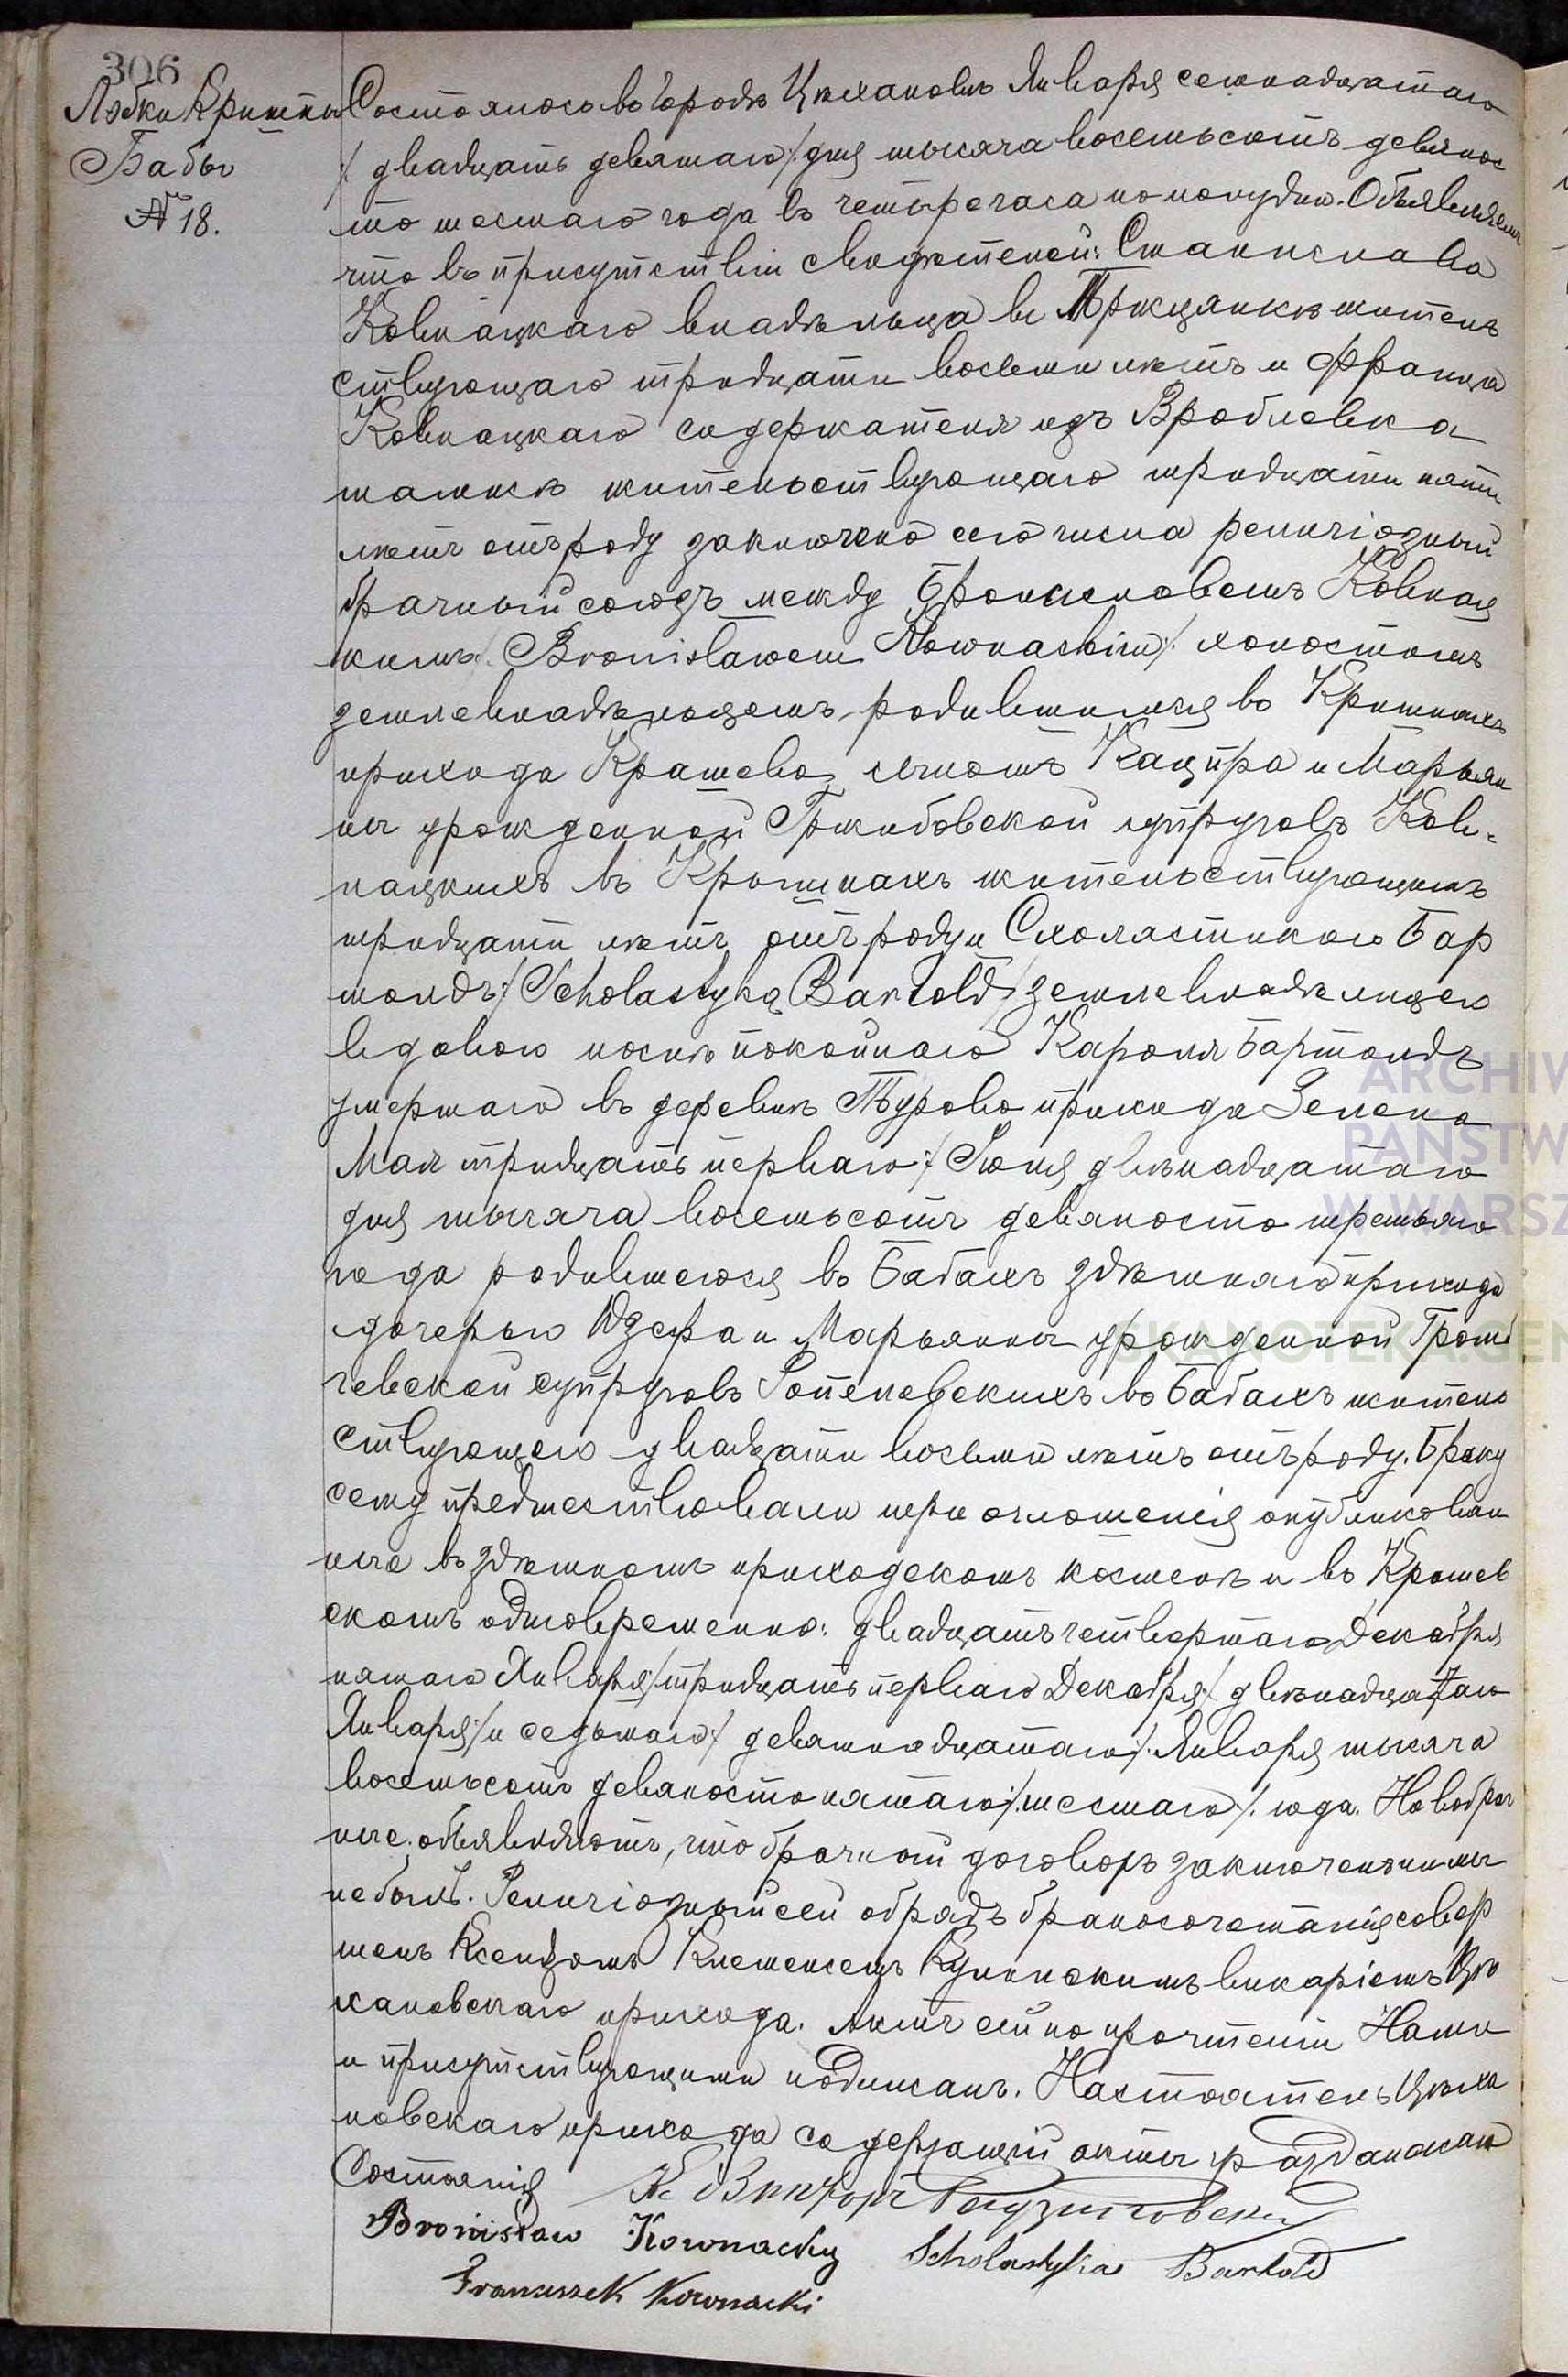 306
Лэбки Кршыны
Бабы
№ 18.
Состоялось въ городѣ Цѣхановѣ Января семнадцатаго
/ двадцать девятаго / дня тысяча восемьсотъ девянос
то шестаго года въ четыре часа по полудни. Объявляемъ
что въ присутствіи свидѣтелей: Станислава
Ковнацкаго владѣльца въ Пржцянкѣ житель
ствующаго тридцати восьми лѣтъ и Франца
Ковнацкаго содержателя изъ Вроблевка
тамже жительствующаго тридцати пяти
лѣтъ отъ роду заключенъ сего числа религіозный
брачный союзъ между Брониславомъ Ковнац
кимъ /: Bronisławem Kownackim :/ холостымъ
землевладѣльцемъ родившимся въ Кршикахъ
прихода Крашево сыномъ Кацпра и Марьян
ны урожденной Гржибовской супруговъ Ков-
нацкихъ въ Крпшнахъ жительствующимъ
тридцати лѣтъ отъ роду и Схоластикою Бар
тольдъ /: Scholastyką Bartold :/ землевладѣлицею
вдовою послѣ покойнаго Кароля Бартольдъ
умершаго въ деревнѣ Турово прихода Зелена
Мая тридцать перваго / Іюня двѣнадцатаго
дня тысяча восемьсотъ девяносто третьяго
года родившеюся въ Бабахъ здѣшняго прихода
дочерью Юзефа и Марьянны урожденной Гром
чевской супруговъ Ропелевскихъ въ Бабахъ житель
ствующею двадцати восьми лѣтъ отъ роду. Браку
сему предшествовали три оглашенія опубликован
ныя въ здѣшномъ приходскомъ костелѣ и въ Крашев
скомъ одновременно: двадцать четвертаго Декабря
пятаго Января / тридцать перваго Декабря / двѣнадцатаго
Января / и седьмаго / девятнадцатаго / Января тысяча
восемьсотъ девяносто пятаго /: шестаго :/ года. Новобрач
ные объявляютъ, что брачный договоръ заключенъ ими
не былъ. Религіозный сей обрядъ бракосочетанія совер
шенъ Ксендзомъ Клеменсемъ викаріемъ Цѣ
хановскаго прихода. Актъ сей по прочтеніи Нами
и присутствующими подписанъ. Настоятель Цѣха
новскаго прихода содержащій акты гражданскаго
Состоянія Кс Викторъ
Bronisław Kownacky Scholastyka Bartold
Franciszek Kownacki
ARCHIW
PAŃSTW
W WARSZ
SKANOTEKA.GEN